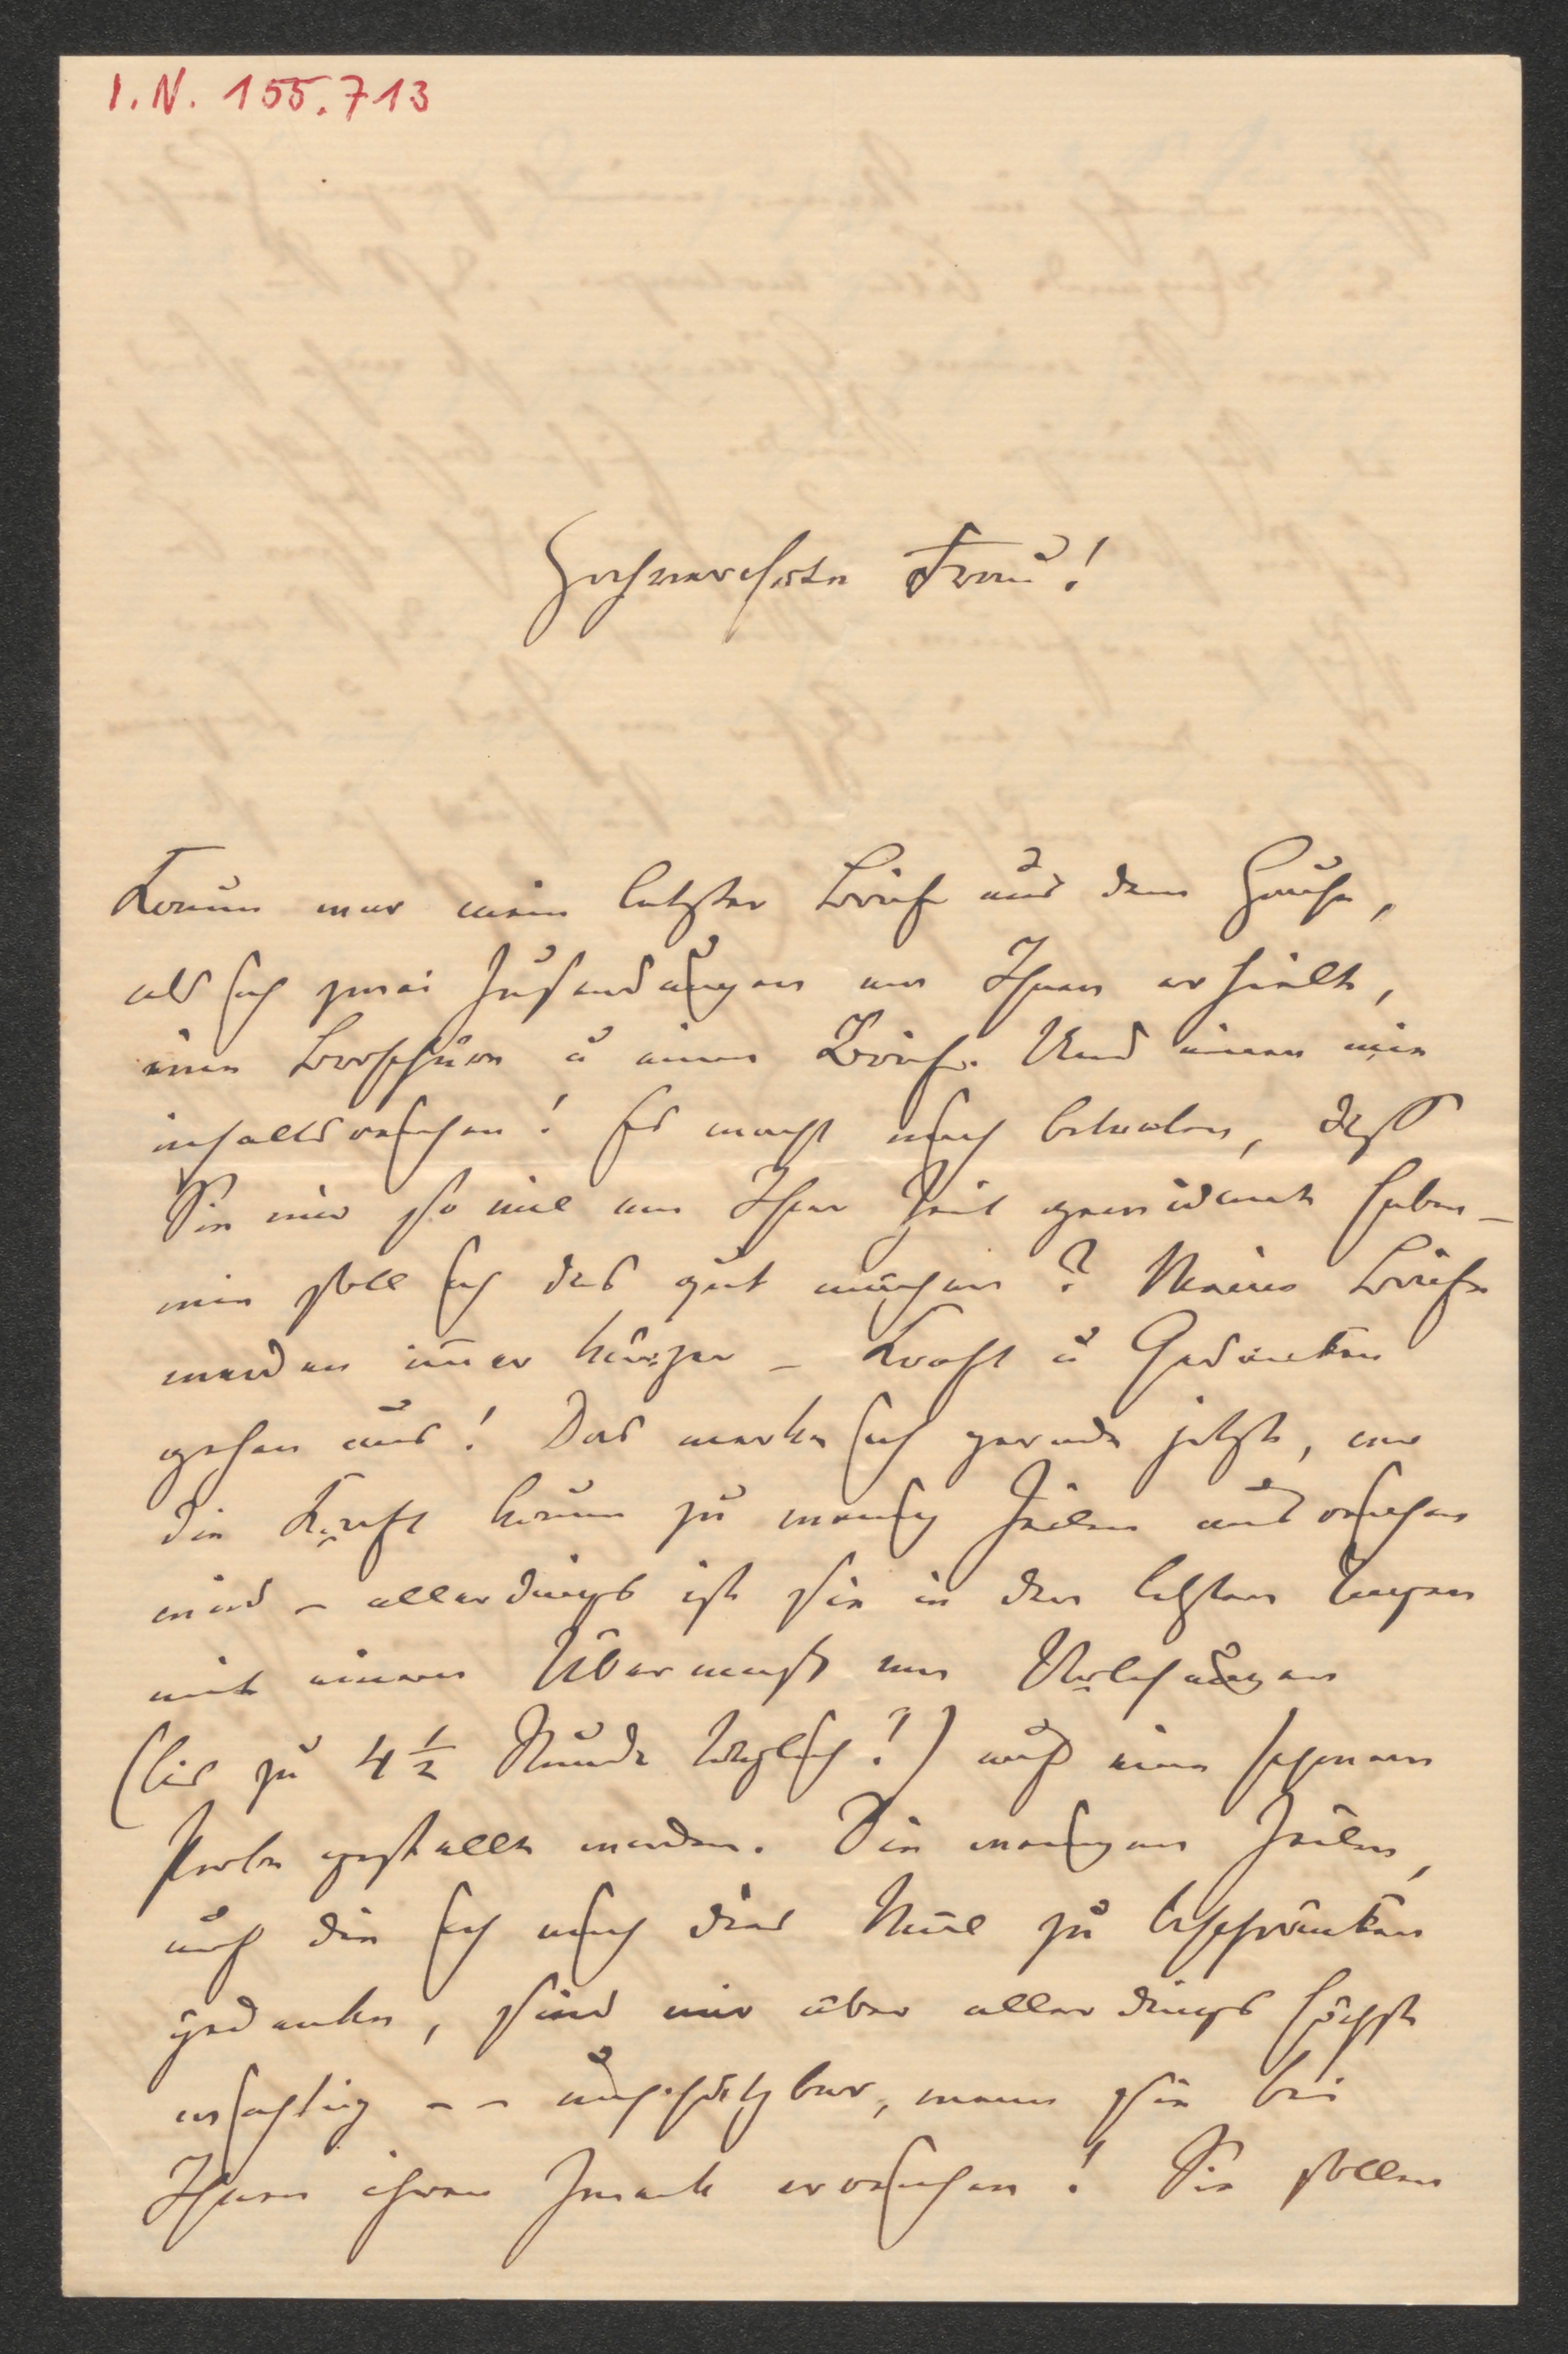 I.N. 155.713
Hochverehrte Frau!
Kaum war mein letzter Brief aus dem Hause,
als ich zwei Zusendungen von Ihnen erhielt,
eine Broschüre u einen Brief. Und einen wie
inhaltsreichen! Es macht mich betreten, dass
Sie mir so viel von Ihrer Zeit gewidmet haben –
wie soll ich das gut machen? Meine Briefe
werden im̄er kürzer – Kraft u Gedanken
gehen aus! Das merke ich gerade jetzt, wo
die Kraft kaum zu wenig Zeilen ausreichen
wird – allerdings ist sie in den letzten Tagen
mit einem Übermaß von Vorlesungen
(bis zu 4 ½ Stunde täglich!) auf eine schwere
Probe gestellt worden. Die wenigen Zeilen,
auf die ich mich dies Mal zu beschränken
gedenke, sind mir aber allerdings höchst
wichtig – – unschätzbar, wenn sie bei
Ihnen ihren Zweck erreichen! Sie sollen